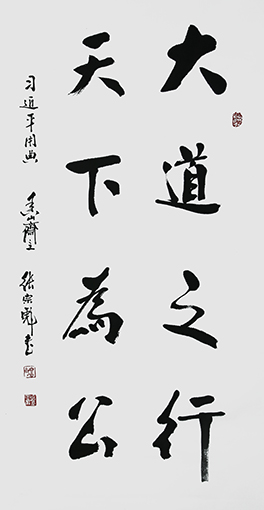 大道之行
天下為公
习近平用典